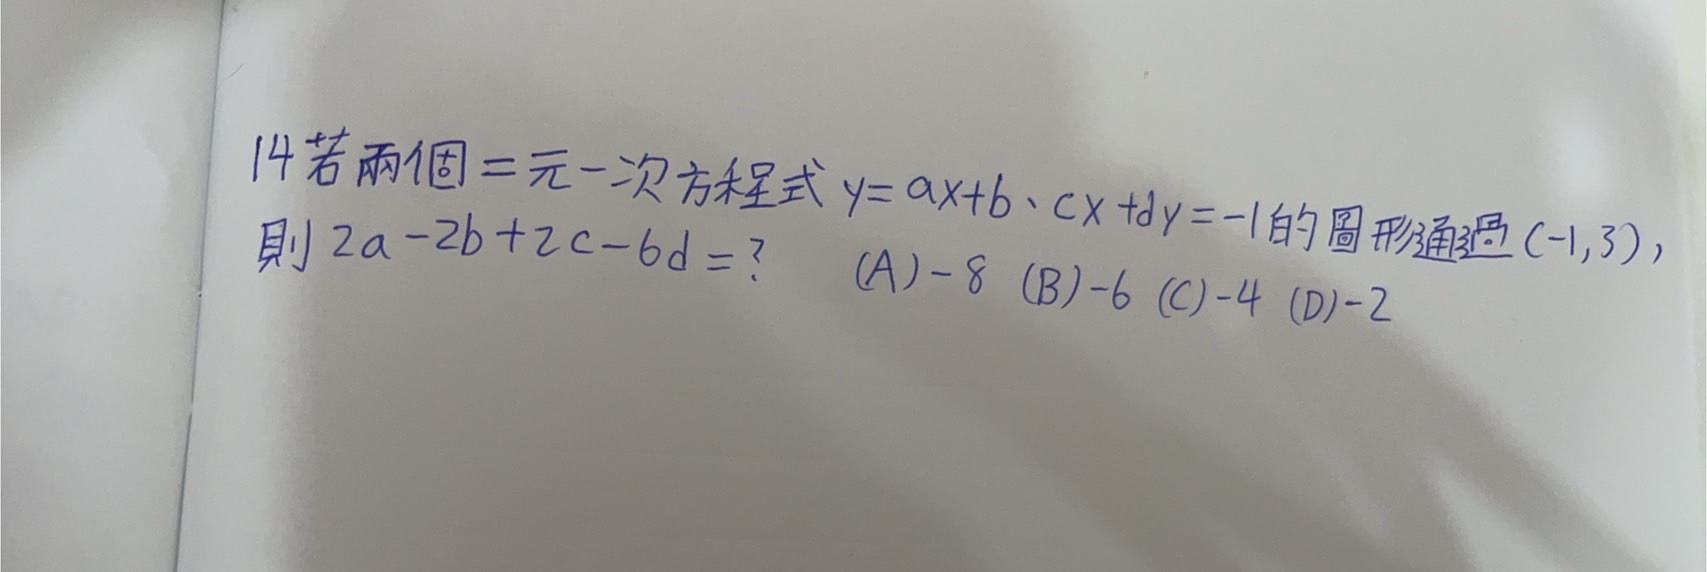 14若兩個二元一次方程式 y=ax+b、cx+dy=-1的圖形通過(-1,3),
則2a-2b+2c-6d=? (A)-8 (B)-6 (C)-4 (D)-2